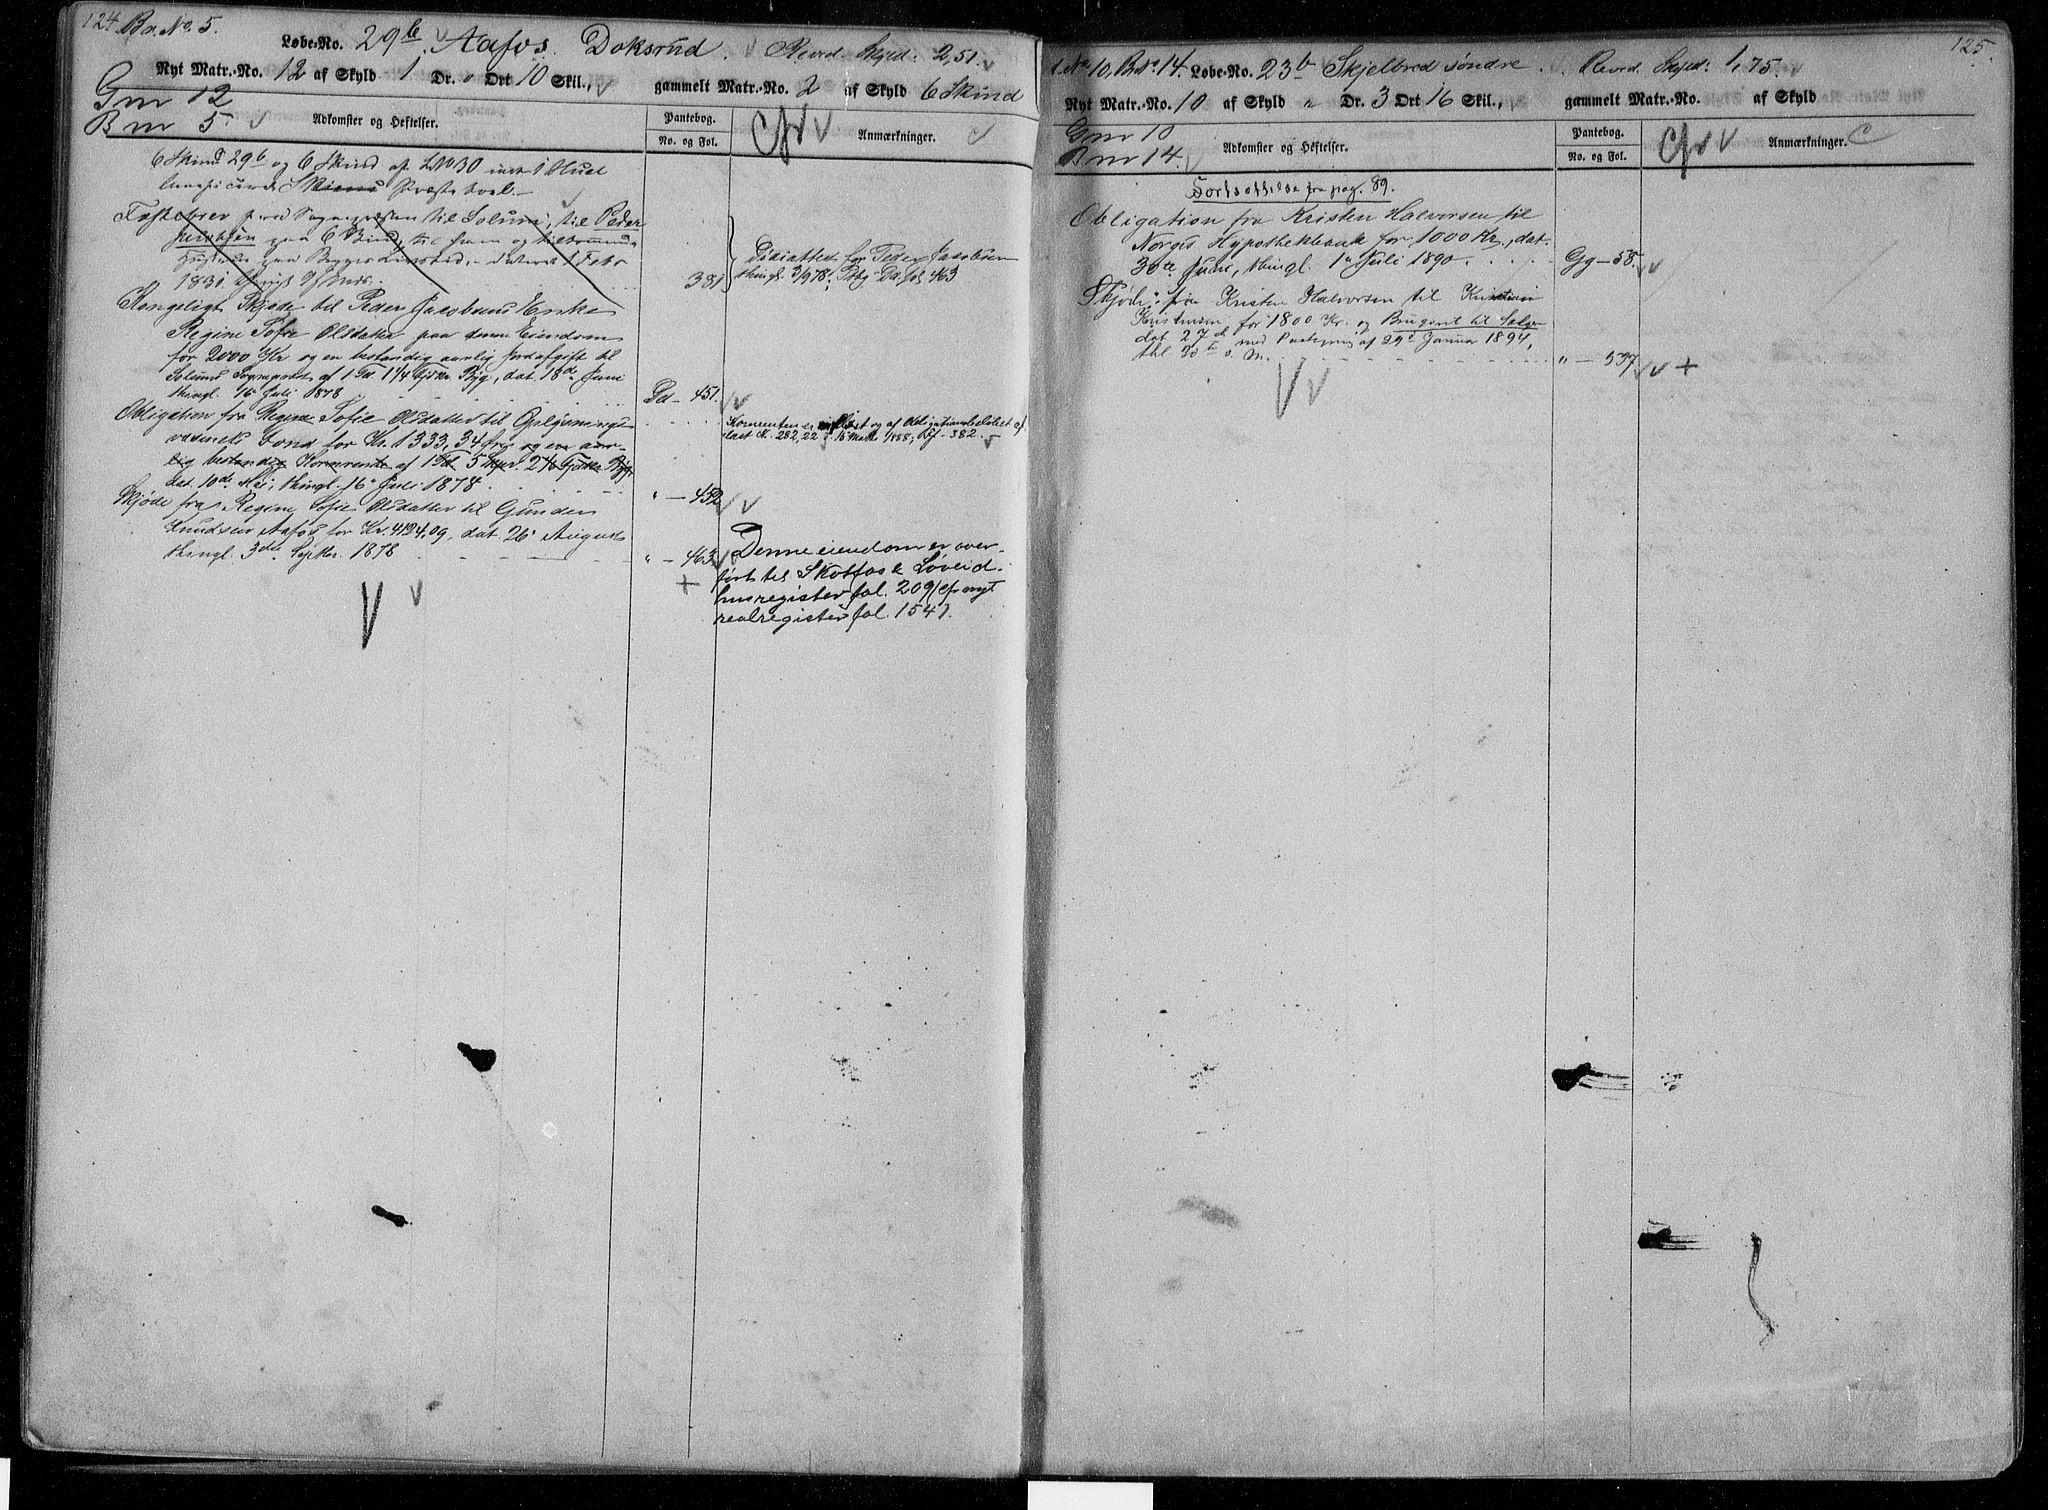 124. Br. No. 5.
Løbe-No. 29b. Aafos. Doksrud. Revd. Skyld: 2,51.
Nyt Matr.-No. 12 af Skyld 1 Dr. " Ort 10 Skil., gammelt Matr.-No. 2 af Skyld 6 Skind
Gnr 12
Bnr 5.
Adkomster og Heftelser.
Pantebog.
No. og Fol.
Cfr
Anmærkninger.
6 Skind 29b og 6 Skind af LNo 30 1 Hud
Skiens Præstebol.
Fæstebrev Sognepræsten til Solum, til Peder
Jacobsen paa 6 Skind, til ham og tilkommende
Hustru paa Bygselsvilkaar, dateret 1 Febr
1831. 381
Diviattest for Peder Jacobsen
thingl. 3/9 78. Pbg Da fol. 463
Kongeligt Skjøde til Peder Jacobsens Enke
Regine Sofie Olsdatter paa denne Eiendom
for 2000 Kr og en bestandig aarlig Jordafgift til
Solums Sognepræst af 1 Td. 1 1/4 Fjdkr Byg, dat. 18de Juni
thingl. 16 Juli 1878 Dd - 451.
Obligation fra Regine Sofie Olsdatter til Oplysnings-
væsenets Fond for Kr. 1333,34 Øre og en aar-
lig bestandig Kornrente af 1 Td 5 Skpr. 2 Fjdkr Byg,
dat. 10de Mai, thingl. 16 Juli 1878. " - 452
Kornrenten er indløst og af Obligationsbeløbet af-
læst Kr. 282,22 15 Marts 1888, Ff - 382.
Skjøde fra Regine Sofie Olsdatter til Gunder
Knudsen Aafos for Kr. 4124,09, dat. 26 August
thingl. 3die Septbr. 1878 " - 463
Denne eiendom er over-
ført til Skotfos & Løveid
husregister fol. 209 (cfr nyt
realregister fol. 154).
125.
G.No 10, B.No 14. Løbe-No. 23b Skjelbred søndre. Revd. Skyld: 1,75.
Nyt Matr.-No. 10 af Skyld " Dr. 3 Ort 16 Skil., gammelt Matr.-No. af Skyld
Gnr 10
Bnr 14.
Adkomster og Heftelser.
Pantebog.
No. og Fol.
Cfr
Anmærkninger.
Fortsættelse fra pag. 89.
Obligation fra Kristen Halvorsen til
Norges Hypothekbank for 1000 Kr., dat.
30te Juni, thingl. 1 Juli 1890. Gg - 58.
Skjøde fra Kristen Halvorsen til Kristian
Kristensen for 1800 Kr. og Brugsret til Sælger
dat 27de med Paategning af 29de Januar 1894,
thl. 30te s. M. " - 537